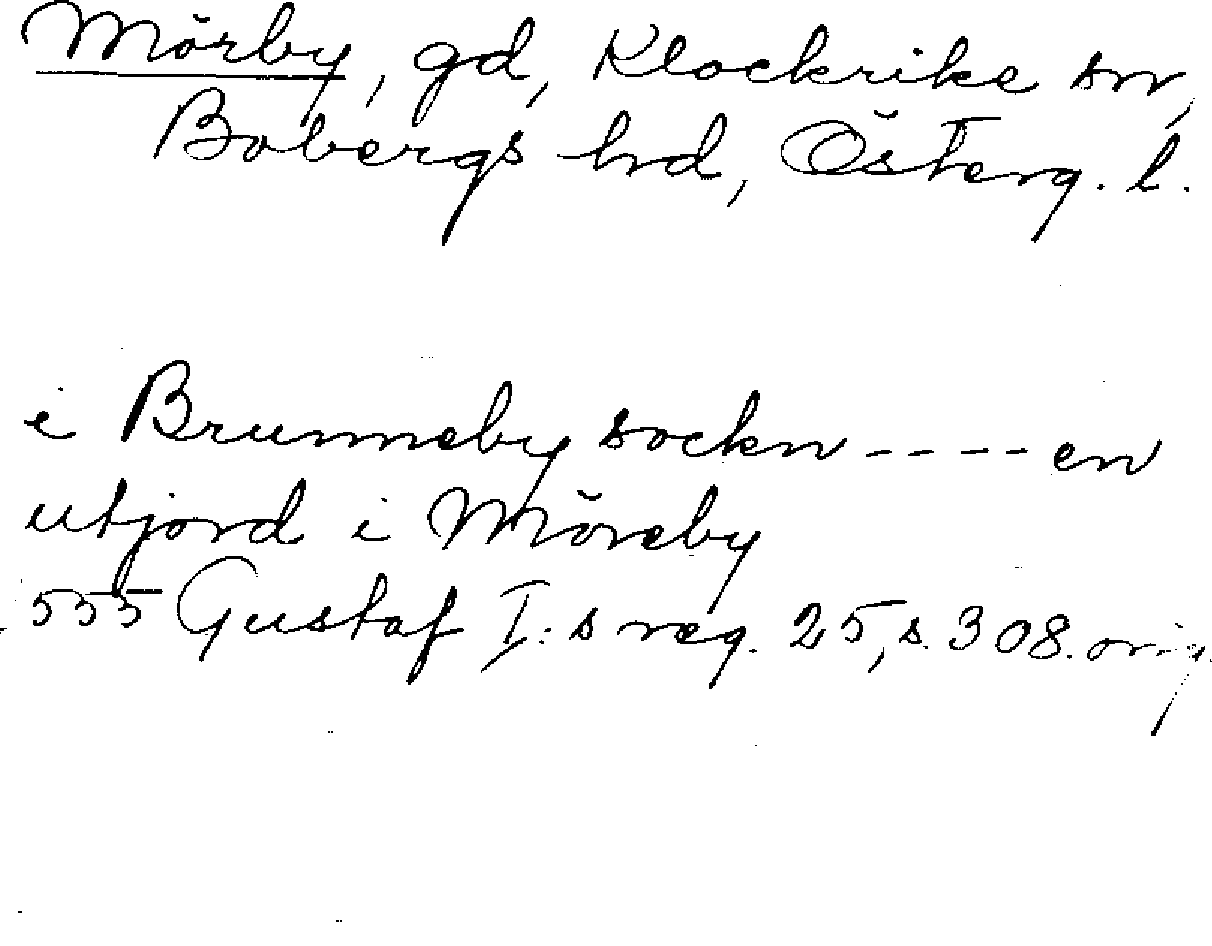 Mörby, gd, Klockrike sn,
Bobergs hd, Österg. l.
i Brunneby sockn ---- en
utjord i Möreby
555 Gustaf I:s reg. 25, s. 308. orig.